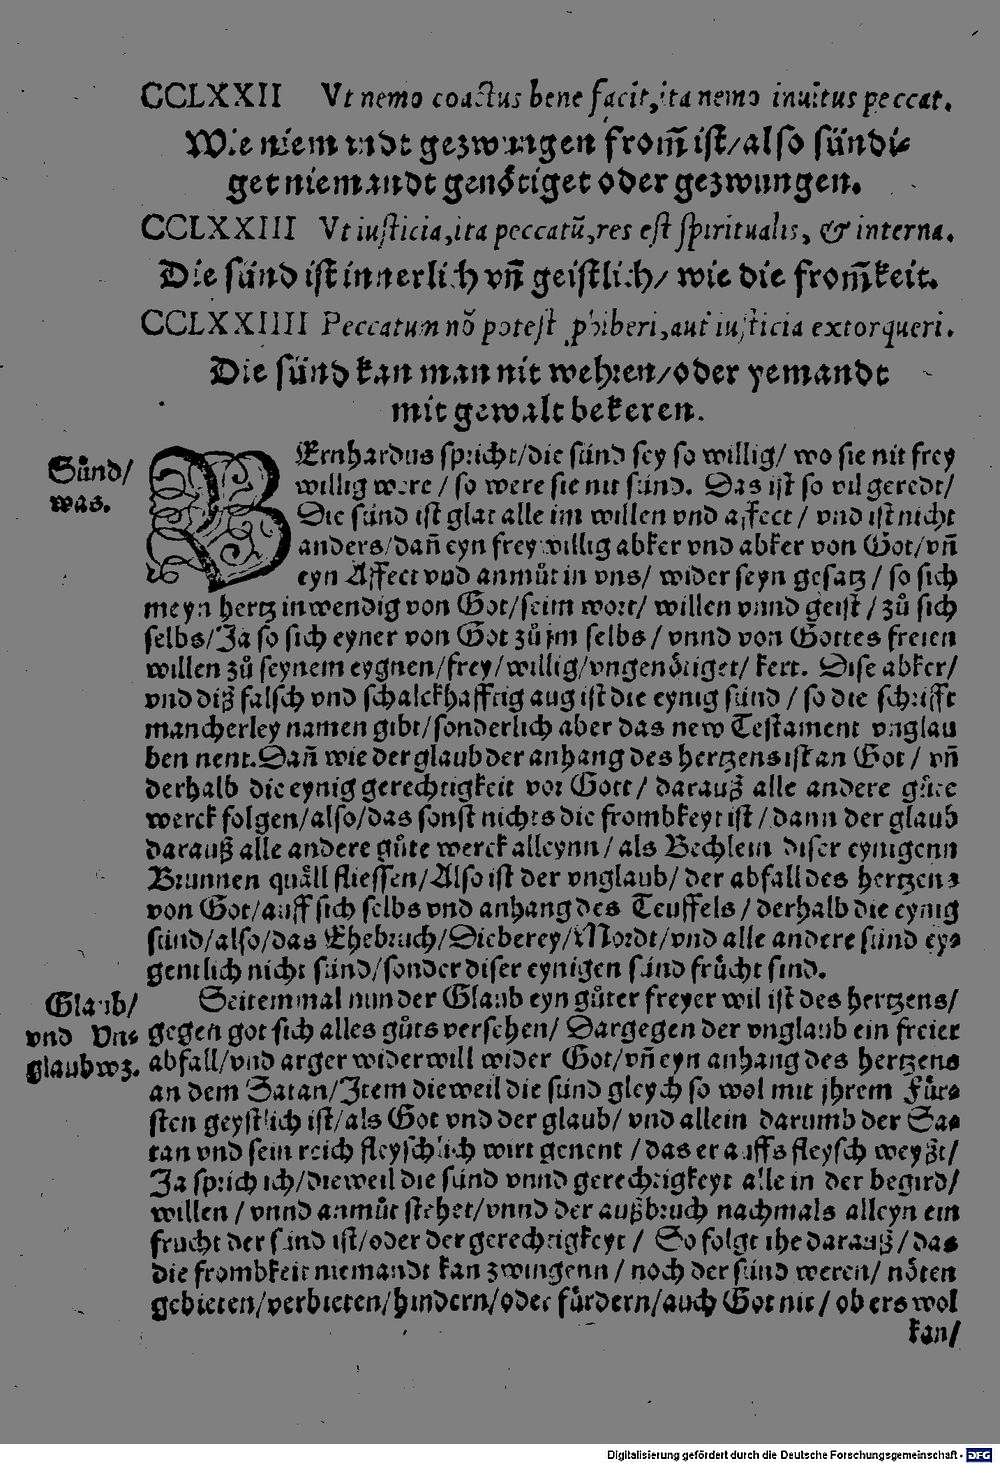 CCLXXII Vt nemo coactus bene facit, ita nemo inuitus peccat.
Wie niemandt gezwungen from̃ ist/also sündi-
get niemandt genötiget oder gezwungen.
CCLXXIII Vt iusticia, ita peccatũ, res est spiritualis, & interna.
Die sünd ist innerlich vñ geistlich/ wie die from̃keit.
CCLXXIIII Peccatum nõ potest ꝓhiberi, aut iusticia extorqueri.
Die sünd kan man nit wehren/oder yemandt
mit gewalt bekeren.
Sünd/
was.
BErnhardus spricht/die sünd sey so willig/ wo sie nit frey
willig were/ so were sie nit sünd. Das ist so vil geredt/
Die sünd ist glat alle im willen vnd affect/ vnd ist nicht
anders/dañ eyn frey willig abker vnd abker von Got/vñ
eyn Affect vnd anmůt in vns/ wider seyn gesatz/ so sich
meyn hertz inwendig von Got/seim wort/ willen vnnd geist/ zů sich
selbs/Ja so sich eyner von Got zů jm selbs/ vnnd von Gottes freien
willen zů seynem eygnen/frey/willig/vngenötiget/ kert. Dise abker/
vnd diß falsch vnd schalckhafftig aug ist die eynig sünd/ so die schrifft
mancherley namen gibt/sonderlich aber das new Testament vnglau
ben nent. Dañ wie der glaub der anhang des hertzens ist an Got/ vñ
derhalb die eynig gerechtigkeit vor Gott/ darauß alle andere gůte
werck folgen/also/das sonst nichts die frombkeyt ist/dann der glaub
darauß alle andere gůte werck alleynn/als Bechlein diser eynigenn
Brunnen quäll fliessen/Also ist der vnglaub/ der abfall des hertzens
von Got/auff sich selbs vnd anhang des Teuffels/ derhalb die eynig
sünd/also/das Ehebruch/Dieberey/Mordt/vnd alle andere sünd ey-
gentlich nicht sünd/sonder diser eynigen sünd frücht sind.
Glaub/
vnd Vn-
glaub wz.
Seitemmal nun der Glaub eyn gůter freyer wil ist des hertzens/
gegen got sich alles gůts versehen/ Dargegen der vnglaub ein freier
abfall/vnd arger widerwill wider Got/vñ eyn anhang des hertzens
an dem Satan/Item dieweil die sünd gleych so wol mit jhrem Für-
sten geystlich ist/als Got vnd der glaub/ vnd allein darumb der Sa-
tan vnd sein reich fleyschlich wirt genent/das er auffs fleysch weyßt/
Ja sprich ich/dieweil die sünd vnnd gerechtigkeyt allein der begird/
willen/ vnnd anmůt stehet/vnnd der außbruch nachmals alleyn ein
frucht der sünd ist/oder der gerechtigkeyt/ So folgt ihe darauß/das
die frombkeit niemandt kan zwingenn/ noch der sünd weren/ nöten
gebieten/verbieten/hindern/oder fürdern/auch Got nit/ ob ers wol
kan/
Digitalisierung gefördert durch die Deutsche Forschungsgemeinschaft - DFG